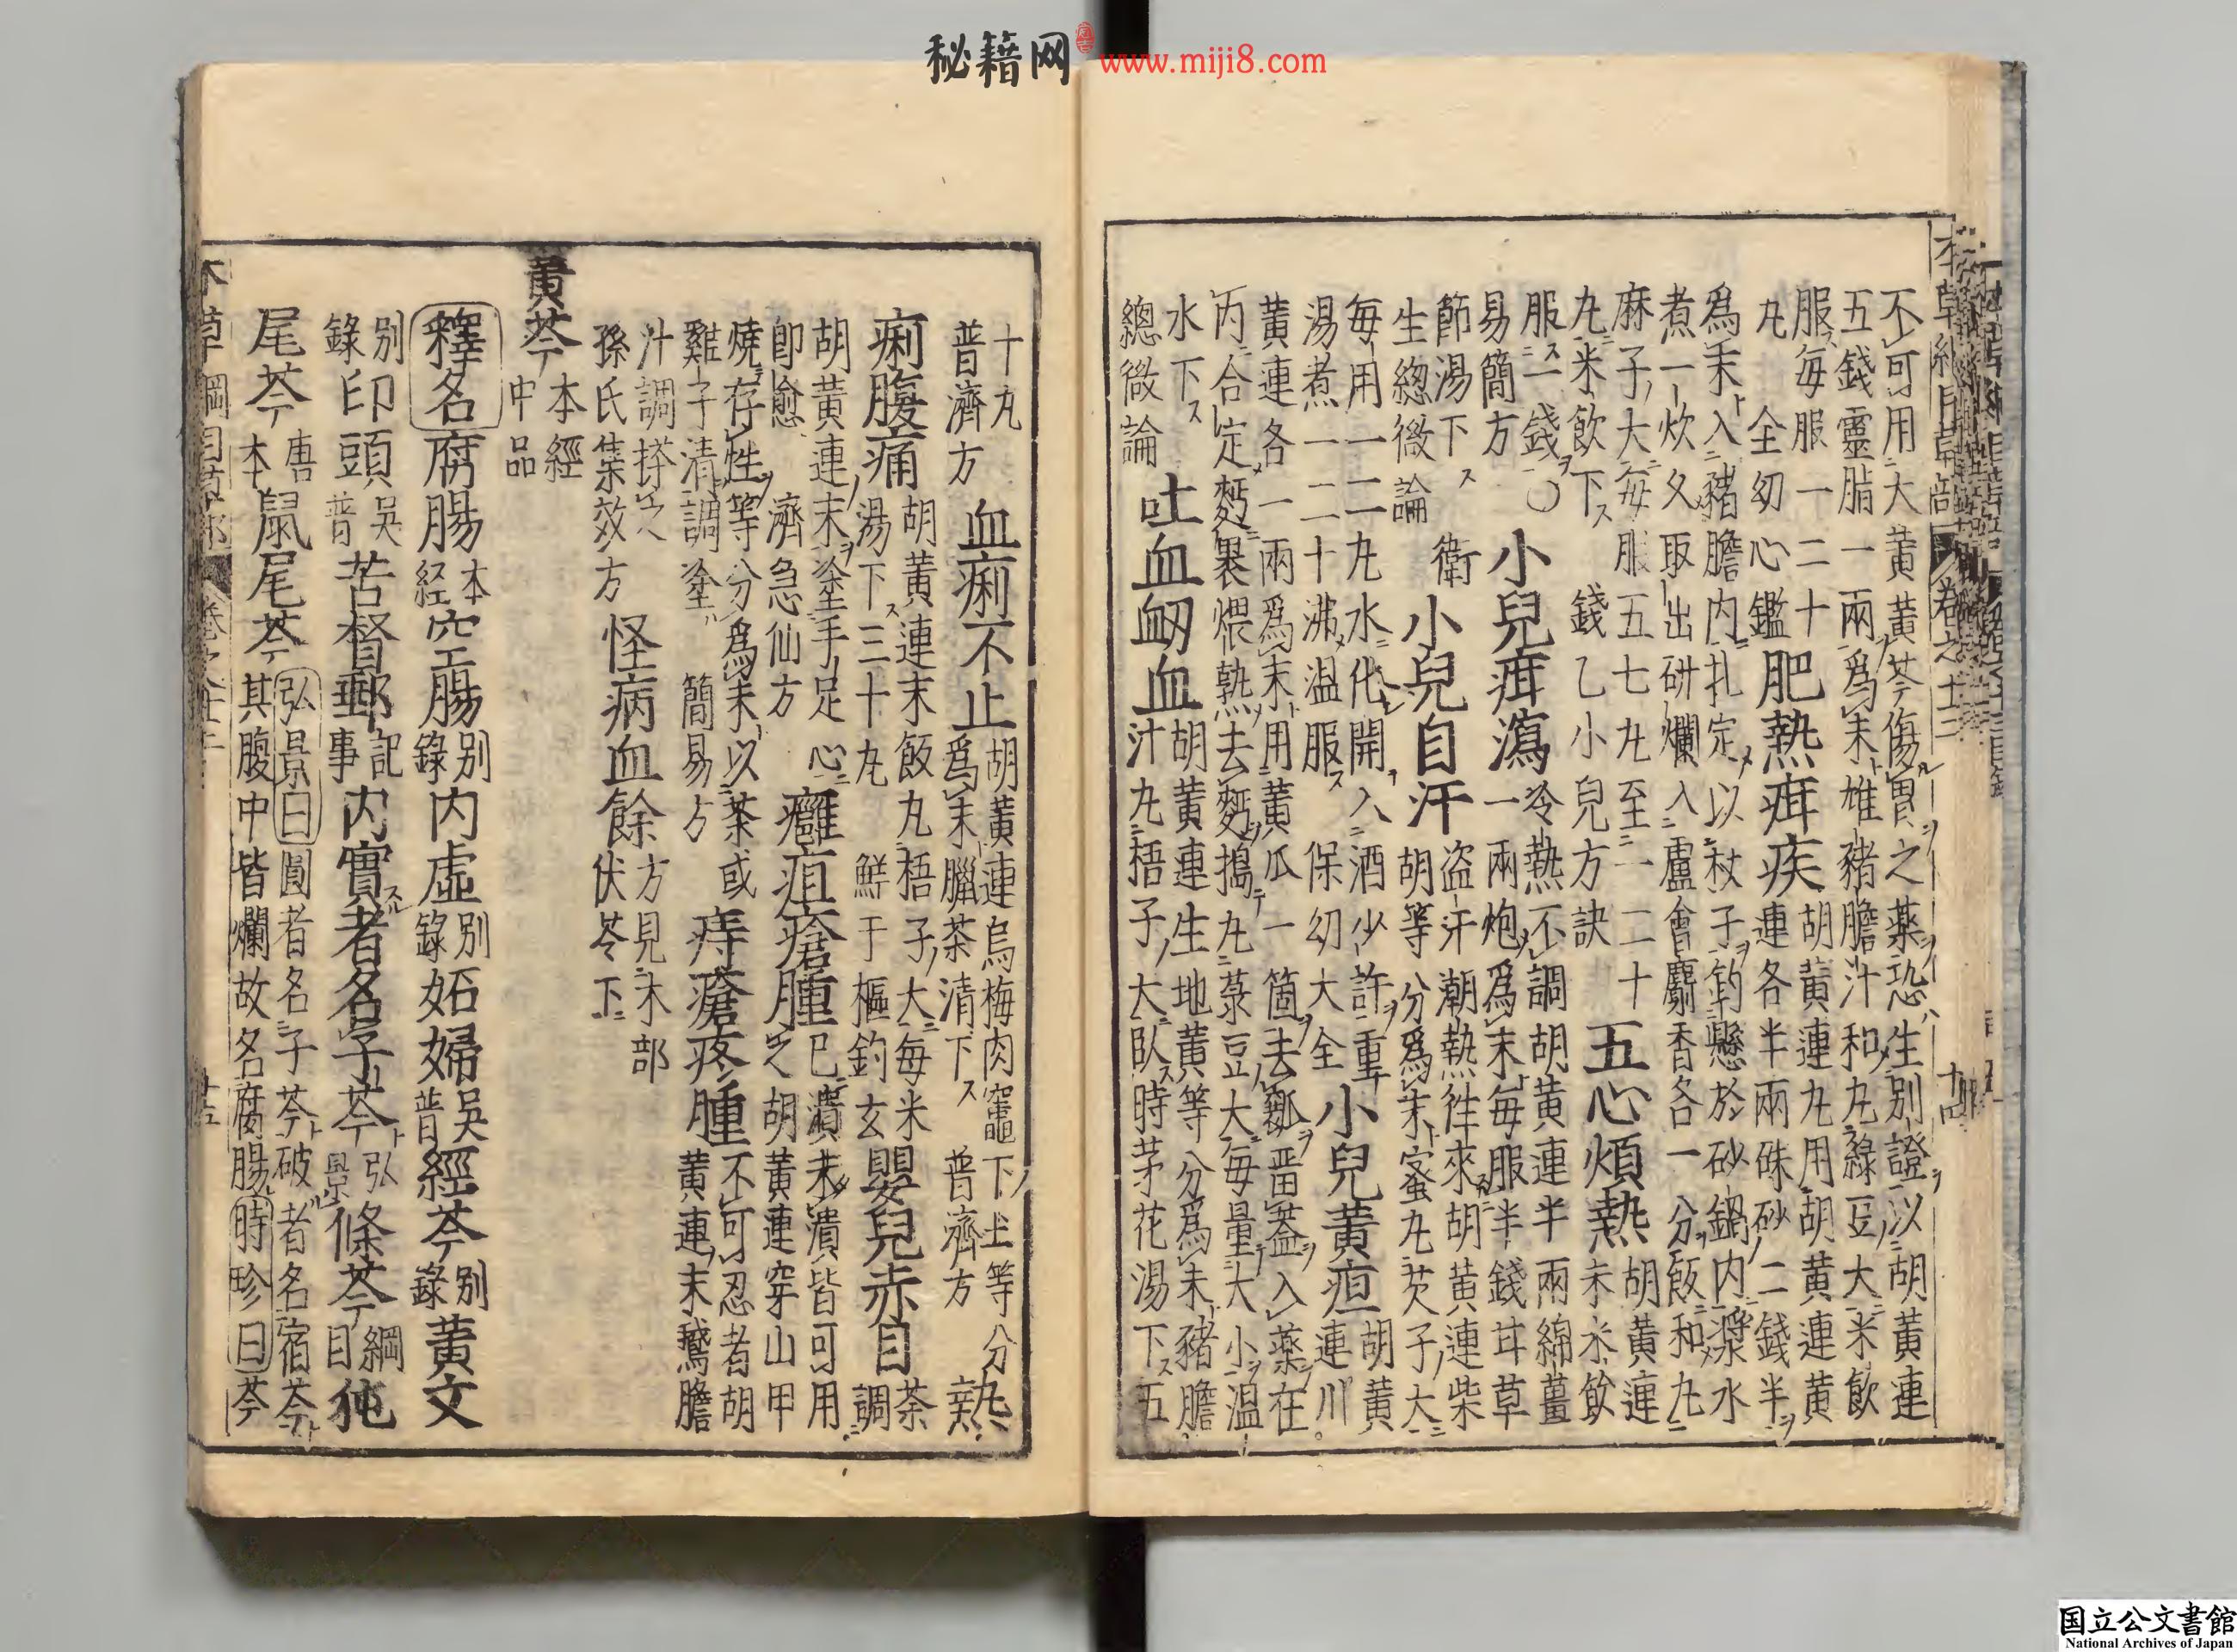 秘籍网 www.miji8.com
不可用大黄黄芩傷胃之薬恐生別證以胡黄連
五錢靈脂一兩爲末雄豬膽汁和丸綠豆大米飲
服每服一二十丸 全幼心鑑
肥熱疳疾
胡黄連丸用胡黄連黄
連各半兩硃砂二錢半
爲末入豬膽内扎定以杖子鈎懸於砂鍋内漿水
煮一炊久取出研爛入盧會麝香各一分飯和丸
麻子大每服五七丸至一二十
丸米飲下 錢乙小兒方訣
五心煩熱
胡黄連
末米飲
服一錢○
易簡方
小兒疳瀉
冷熱不調胡黄連半兩綿薑
一兩炮爲末每服半錢甘草
節湯下 衛
生總微論
小兒自汗
盗汗潮熱往來胡黄連柴
胡等分爲末蜜丸芡子大
每用一二丸水化開入酒少許重
湯煮一二十沸温服 保幼大全
小兒黄疸
胡黄
連川
黄連各一兩爲末用黄瓜一箇去瓤畱蓋入薬在
内合定麪裹煨熟去麪搗丸菉豆大每量大小温
水下
總微論
吐血衂血
胡黄連生地黄等分爲末豬膽
汁丸梧子大臥時茅花湯下五
十丸
普濟方
血痢不止
胡黄連烏梅肉竈下土等分
爲末臘茶清下 普濟方
熱痢腹痛
胡黄連末飯丸梧子大每米
湯下三十丸 鮮于樞鈎玄
嬰兒赤目
茶調
胡黄連末塗手足心
即愈 濟急仙方
癰疽瘡腫
已潰未潰皆可用
之胡黄連穿山甲
燒存性等分爲末以茶或
雞子清調塗 簡易方
痔瘡疼腫
不可忍者胡
黄連末鵝膽
汁調搽之
孫氏集效方
怪病血餘
方見木部
伏苓下
黄芩
本經
中品
釋名
腐腸
本
経
空腸
別
錄
内虚
別
錄
妬婦
吳
普
經芩
別
錄
黄文
別
錄
印頭
吳
普
苦督郵
記
事
内實者名子芩
弘
景
條芩
綱
目
㹠
尾芩
唐
本
鼠尾芩
弘景曰圓者名子芩破者名宿芩
其腹中皆爛故名腐腸時珍曰芩
国立公文書館
National Archives of Japan